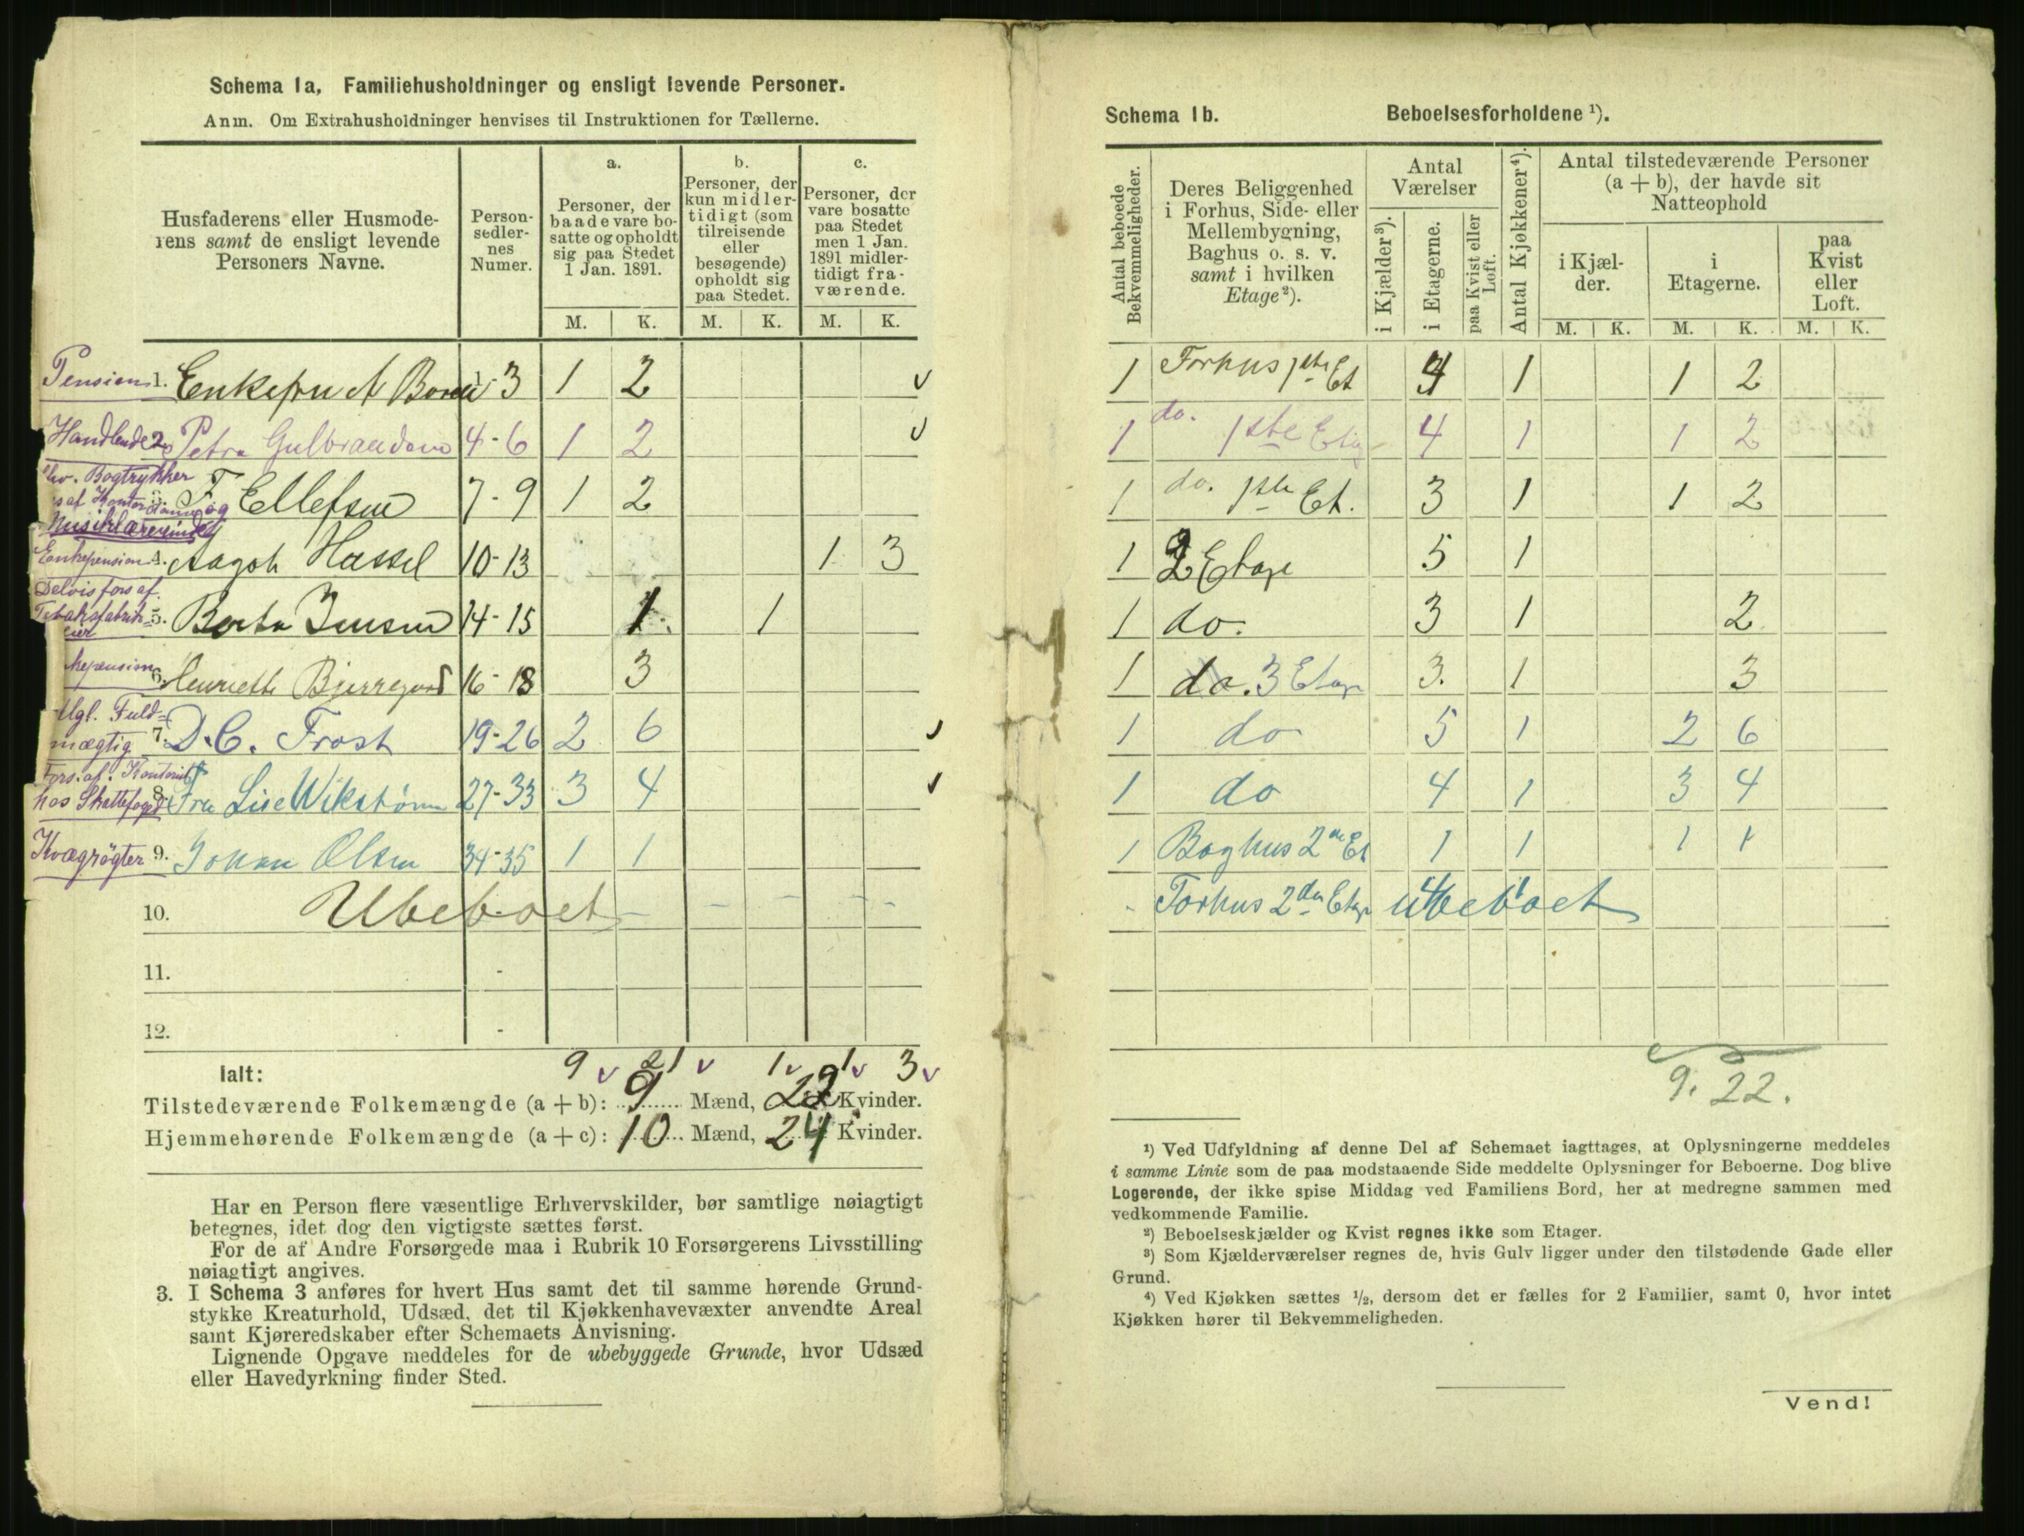 Schema 1a. Familiehusholdninger og ensligt levende Personer.
Anm. Om Extrahusholdninger henvises til Instruktionen for Tællerne.
Husfaderens eller Husmoderens samt de ensligt levende Personers Navne.
Person-sedler-nes Numer.
a. Personer, der baade vare bosatte og opholdt sig paa Stedet 1 Jan. 1891.
b. Personer, der kun midlertidigt (som tilreisende eller besøgende) opholdt sig paa Stedet.
c. Personer, der vare bosatte paa Stedet men 1 Jan. 1891 midlertidigt fraværende.
M. K. M. K. M. K.
Pension 1. Enkefru A 1-3 1 2
Handlende 2. Petra Gulbrandsen 4-6 1 2
Bogtrykker
af Kontor og
Musiklærerinde
3. F Ellefsen 7-9 1 2
Enkepension 4. Aagot Hassel 10-13 1 3
Delvis fors af.
Tobaksfabrik=
eier
5. Berta Jensen 14-15 1 1
kepension 6. Henriette Bjerregaard 16-18 3
Fuld=
mægtig 7. D. C. Frost 19-26 2 6
Fors. af. Kontorist
hos Skattefoged 8. Fru Lise Wikstrøm 27-33 3 4
Kvægrøgter 9. Johan Olsen 34-35 1 1
10. Ubeboet
11. -
12. -
9 21 1 1 3
Ialt:
Tilstedeværende Folkemængde (a + b): 9 Mænd, 22 Kvinder.
Hjemmehørende Folkemængde (a + c): 10 Mænd, 24 Kvinder.
Har en Person flere væsentlige Erhvervskilder, bør samtlige nøiagtigt
betegnes, idet dog den vigtigste sættes først.
For de af Andre Forsørgede maa i Rubrik 10 Forsørgerens Livsstilling
nøiagtigt angives.
3. I Schema 3 anføres for hvert Hus samt det til samme hørende Grund-
stykke Kreaturhold, Udsæd, det til Kjøkkenhavevæxter anvendte Areal
samt Kjøreredskaber efter Schemaets Anvisning.
Lignende Opgave meddeles for de ubebyggede Grunde, hvor Udsæd
eller Havedyrkning finder Sted.
Schema 1b. Beboelsesforholdene ¹).
Antal beboede Bekvemmeligheder.
Deres Beliggenhed i Forhus, Side- eller Mellembygning, Baghus o. s. v. samt i hvilken Etage ²).
Antal Værelser
i Kjælder ³). i Etagerne. paa Kvist eller Loft.
Antal Kjøkkener ⁴).
Antal tilstedeværende Personer (a + b), der havde sit Natteophold
i Kjælder. i Etagerne. paa Kvist eller Loft.
M. K. M. K. M. K.
1 Forhus 1ste Et 4 1 1 2
1 do. 1ste Etag 4 1 1 2
1 do. 1ste Et. 3 1 1 2
1 2 Etage 5 1
1 do. 3 1 2
1 do. 3 Etage 3. 1 3
1 do 5 1 2 6
1 do 4 1 3 4
1 Baghus 2de Et 1 1 1 1
Forhus 2den Etage 4 1 ubeboet
9. 22.
¹) Ved Udfyldning af denne Del af Schemaet iagttages, at Oplysningerne meddeles
i samme Linie som de paa modstaaende Side meddelte Oplysninger for Beboerne. Dog blive
Logerende, der ikke spise Middag ved Familiens Bord, her at medregne sammen med
vedkommende Familie.
²) Beboelseskjælder og Kvist regnes ikke som Etager.
³) Som Kjælderværelser regnes de, hvis Gulv ligger under den tilstødende Gade eller
Grund.
⁴) Ved Kjøkken sættes ½, dersom det er fælles for 2 Familier, samt 0, hvor intet
Kjøkken hører til Bekvemmeligheden.
Vend!